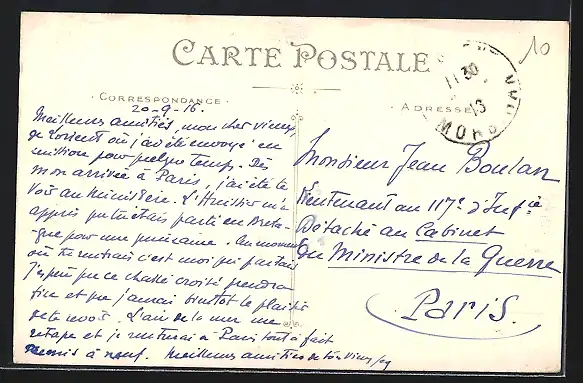 CARTE POSTALE
10
11 30
13
MORB
CORRESPONDANCE
ADRESSE
20-9-16.
Meilleures amitiés, mon cher vieux
de Lorient où j'ai été envoyé en
mission pour quelque temps. Dès
mon arrivée à Paris, j'ai été te
voir au Ministère. L'Huissier m'a
appris que tu étais parti en Breta-
-gne pour une quinzaine. Au moment
où tu rentrais c'est moi qui partais
J'espère que ce chassé croisé prendra
fin et que j'aurai bientôt le plaisir
de te revoir. L'air de la mer me
retape et je rentrerai à Paris tout à fait
remis à neuf. Meilleures amitiés de ton vieux
Monsieur Jean Boulan
Lieutenant au 117e d'Infie
Détaché au Cabinet
du Ministre de la Guerre
Paris.